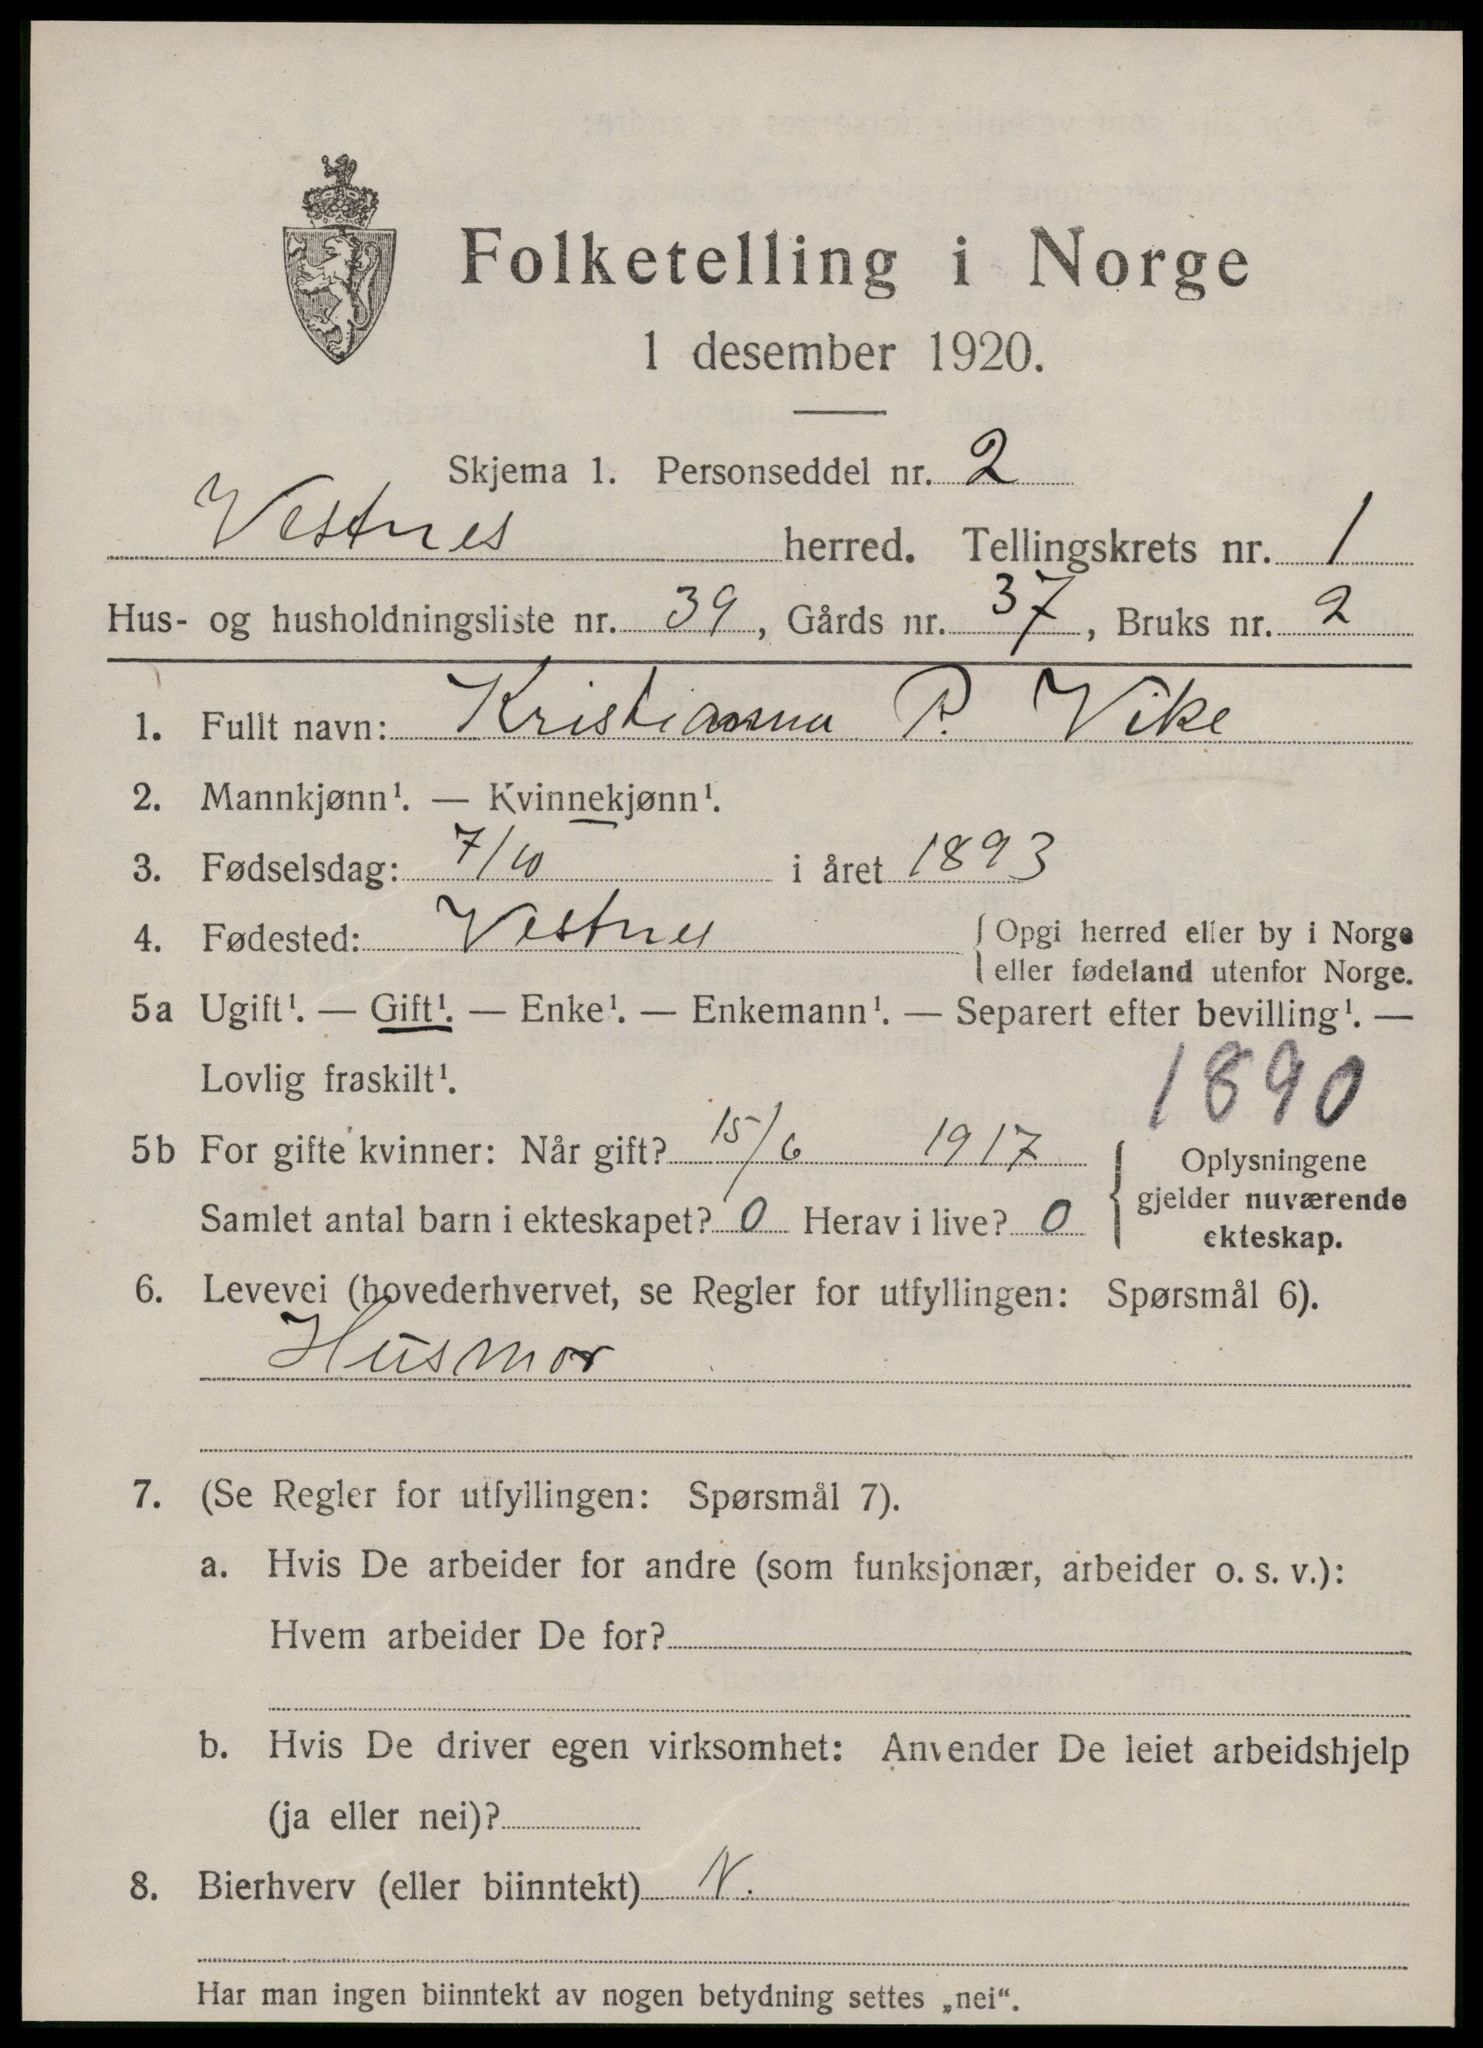 Folketelling i Norge
1 desember 1920.
Skjema 1. Personseddel nr. 2
Vestnes herred. Tellingskrets nr. 1
Hus- og husholdningsliste nr. 39, Gårds nr. 37, Bruks nr. 2
1. Fullt navn: Kristianna P. Vike
2. Mannkjønn¹. — Kvinnekjønn¹.
3. Fødselsdag: 7/10 i året 1893
4. Fødested: Vestnes { Opgi herred eller by i Norge
eller fødeland utenfor Norge.
5a Ugift¹. — Gift¹. — Enke¹. — Enkemann¹. — Separert efter bevilling¹. —
Lovlig fraskilt¹.
1890
5b For gifte kvinner: Når gift? 15/6 1917
Samlet antal barn i ekteskapet? 0 Herav i live? 0
{ Oplysningene
gjelder nuværende
ekteskap.
6. Levevei (hovederhvervet, se Regler for utfyllingen: Spørsmål 6).
Husmor
7. (Se Regler for utfyllingen: Spørsmål 7).
a. Hvis De arbeider for andre (som funksjonær, arbeider o. s. v.):
Hvem arbeider De for?
b. Hvis De driver egen virksomhet: Anvender De leiet arbeidshjelp
(ja eller nei)?
8. Bierhverv (eller biinntekt) N.
Har man ingen biinntekt av nogen betydning settes „nei“.